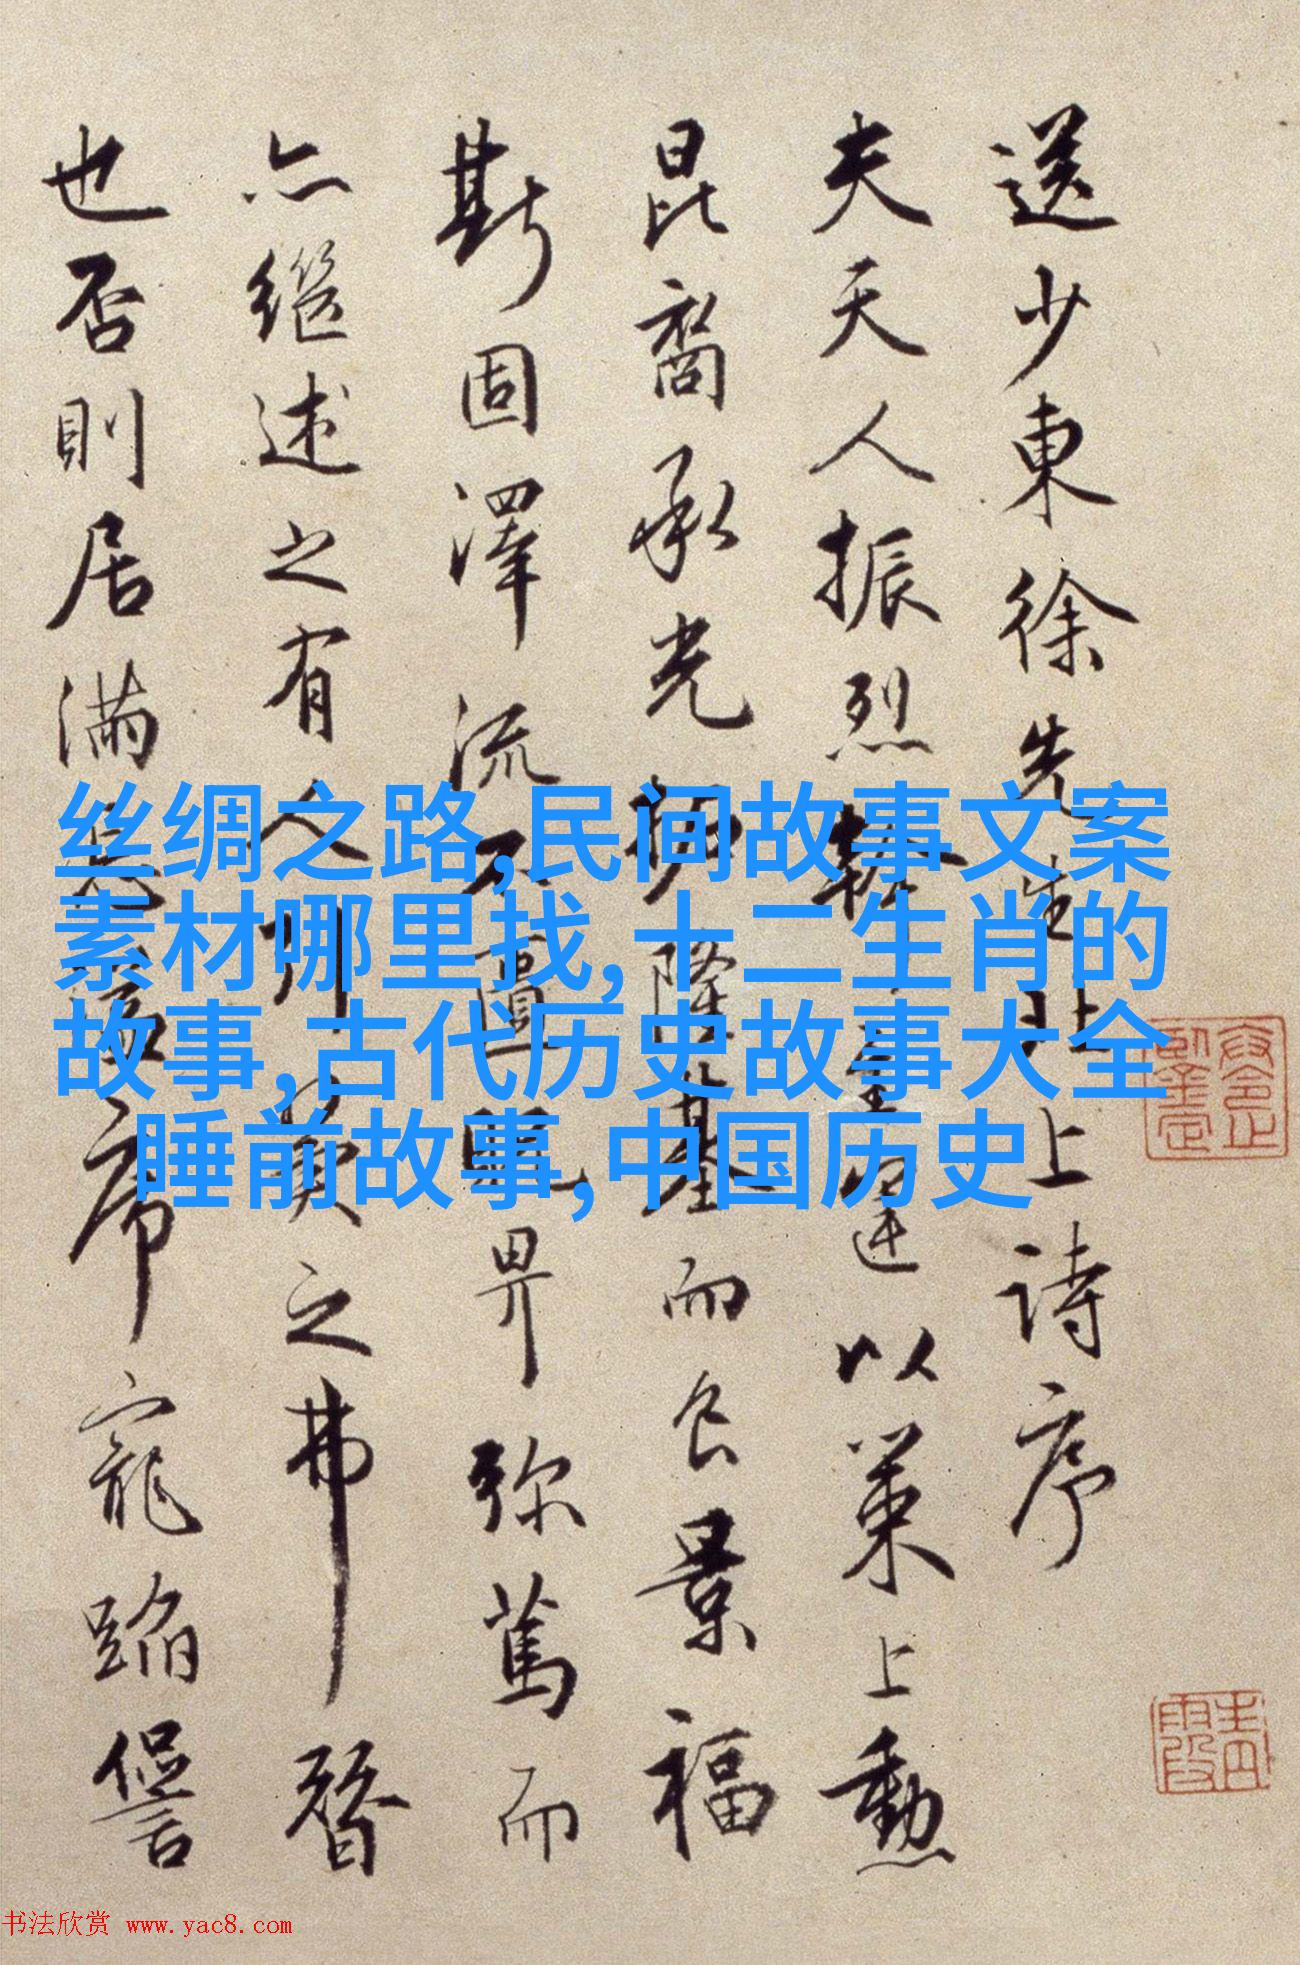 送少東徐先生北上詩序
夫天人振烈 重運以策上勳
昆裔承光 隆基而介景福
斯固澤流不匱 畀彌篤而
亦繼述之有人 之弗替
也否則居滿 席寵蹈僭
丝绸之路,民间故事文案
素材哪里找,十二生肖的
故事,古代历史故事大全
睡前故事,中国历史
书法欣赏 www.yac8.com